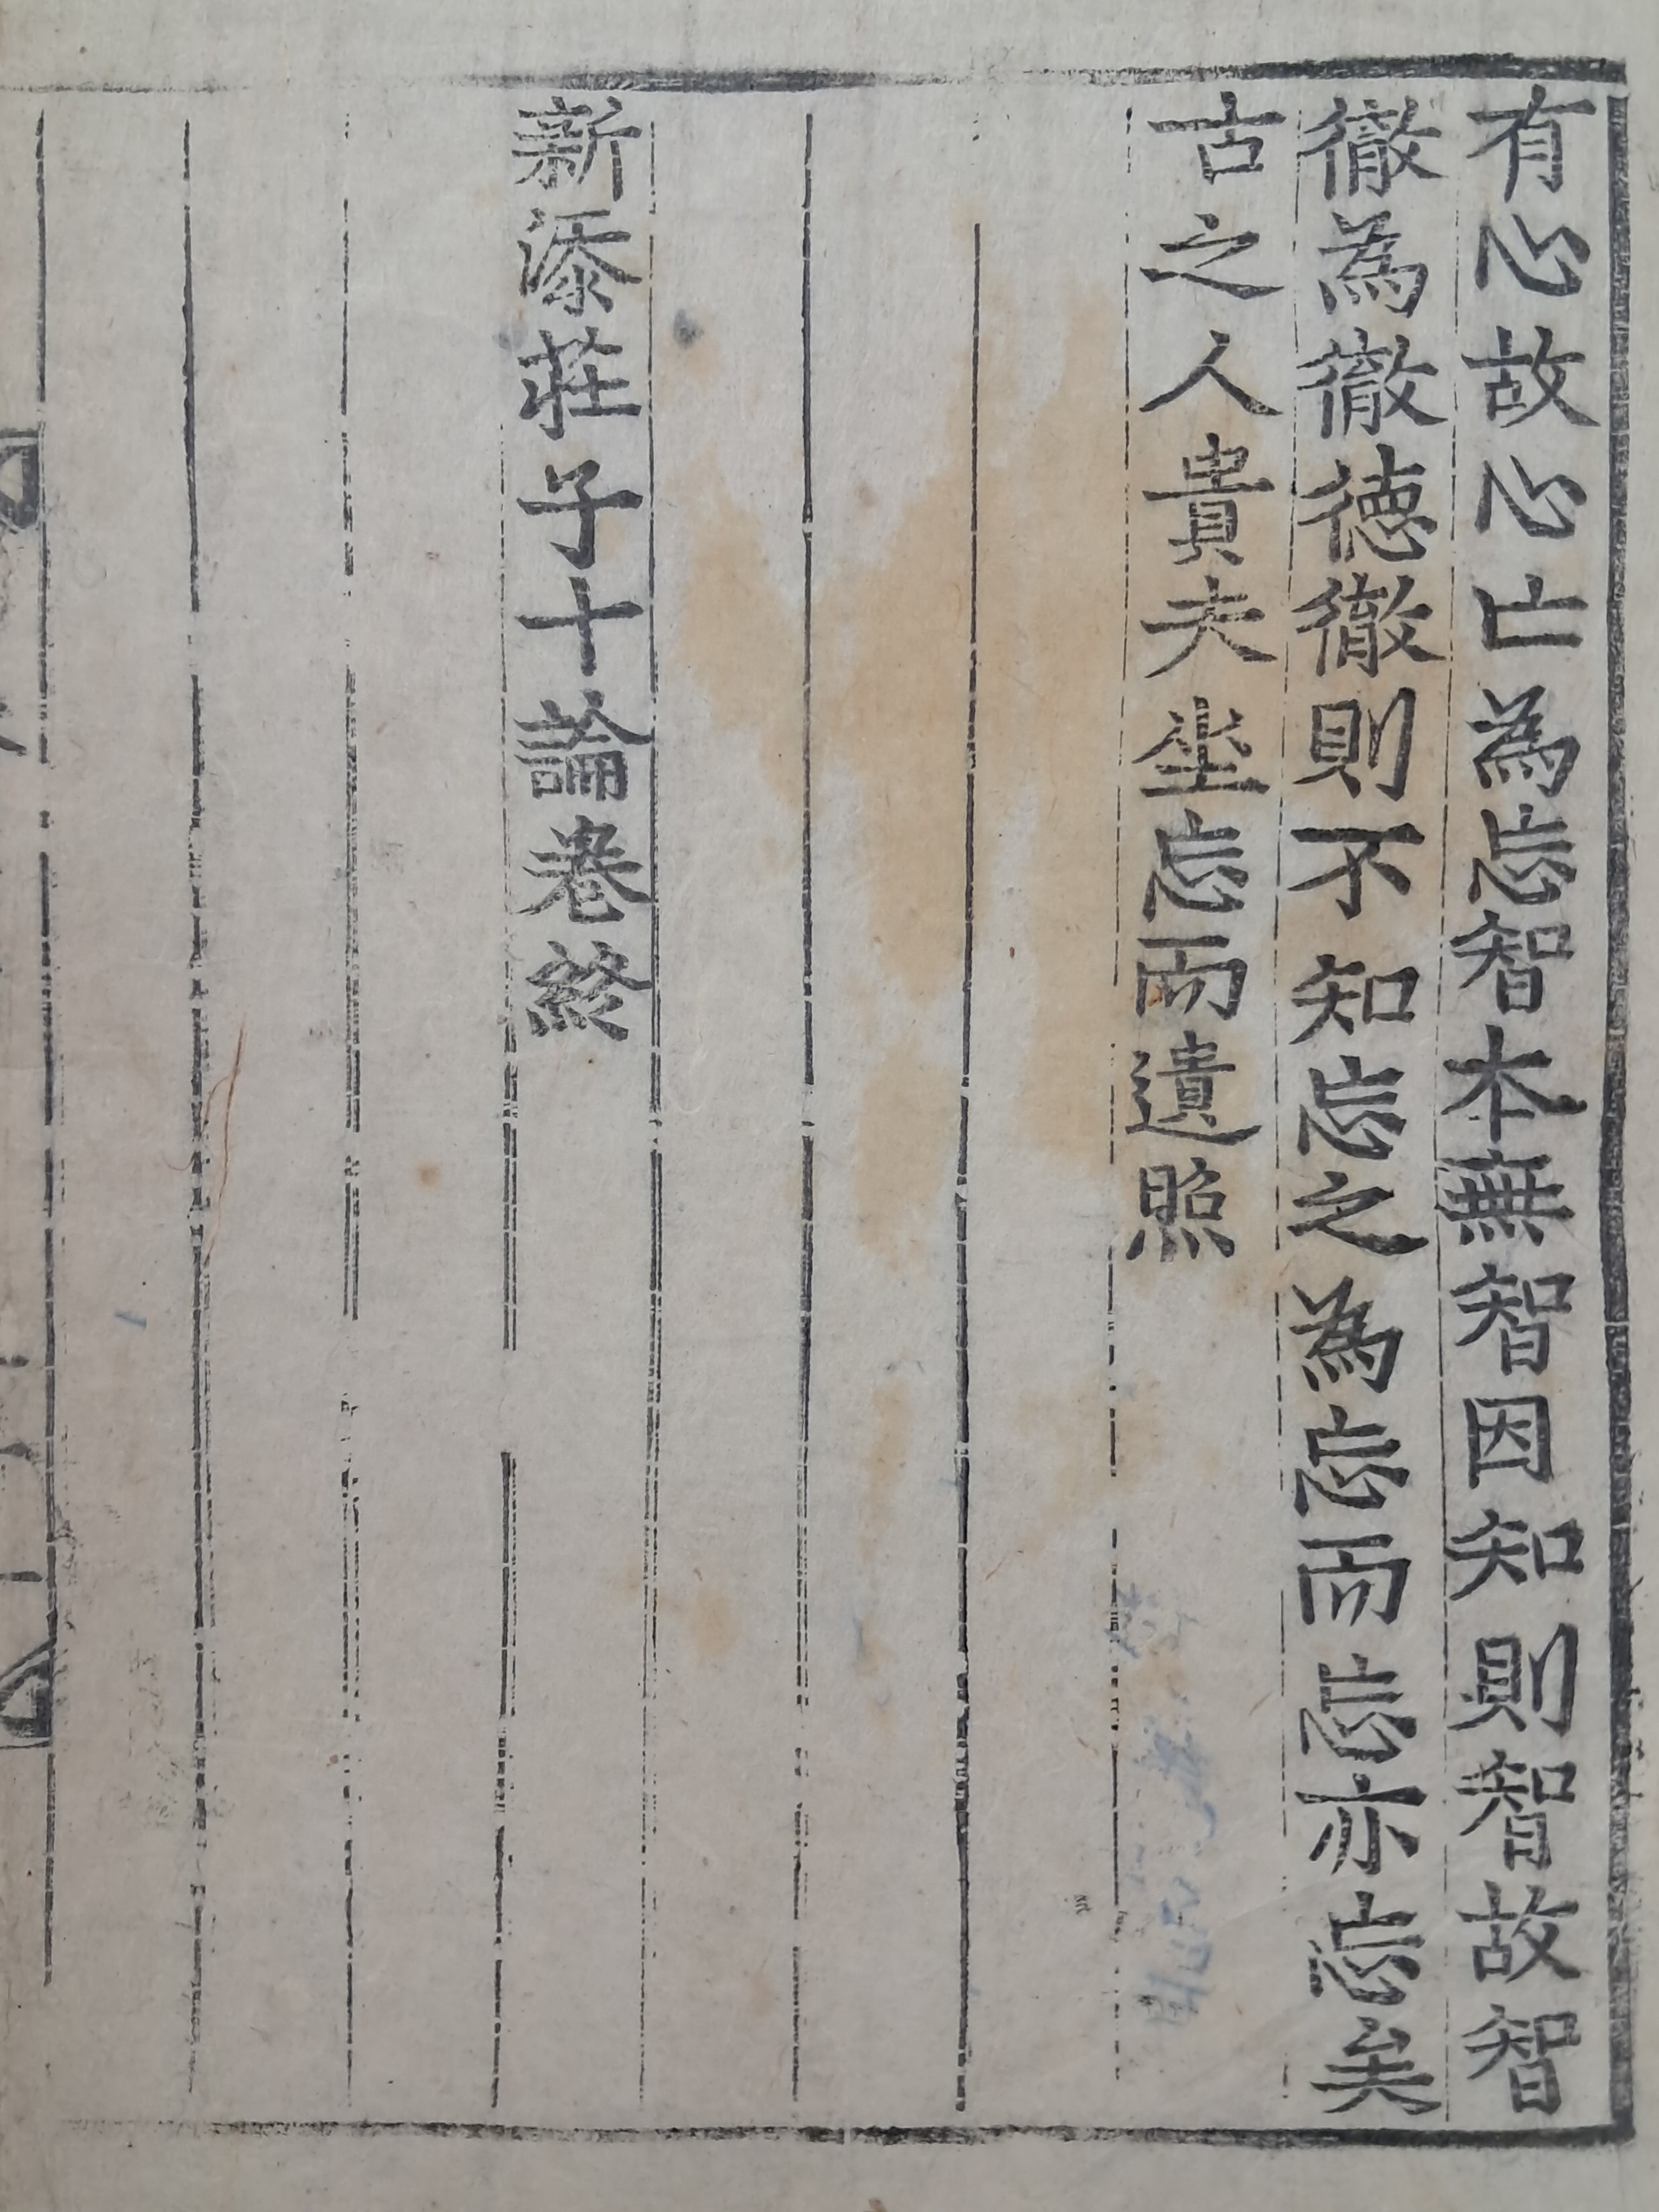 有心故心亡為忘智本無智因知則智故智
徹為徹德徹則不知忘之為忘而忘亦忘矣
古之人貴夫坐忘而遺照
新添莊子十論卷終